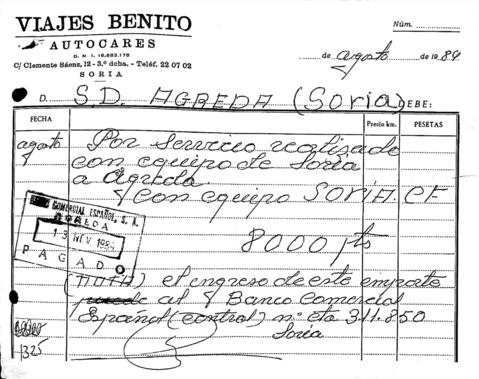 VIAJES BENITO
AUTOCARES
D. N. I. 16.683.178
C/ Clemente Sáenz, 12 - 3.º dcha. - Teléf. 22 07 02
SORIA
Núm.
de agosto de 1984
D. S.D. AGREDA (Soria) DEBE:
FECHA Precio km. PESETAS
agosto Por servicio realizado
con equipo de Soria
a Agreda
y con equipo SORIA. CF
8000 pts
COMERCIAL ESPAÑOL, S. A.
AGREDA
13 NOV. 1984
PAGADO
(NOTA) el ingreso de este importe
puede al Banco Comercial
Español (central) nº cta 311.850
Soria
1325